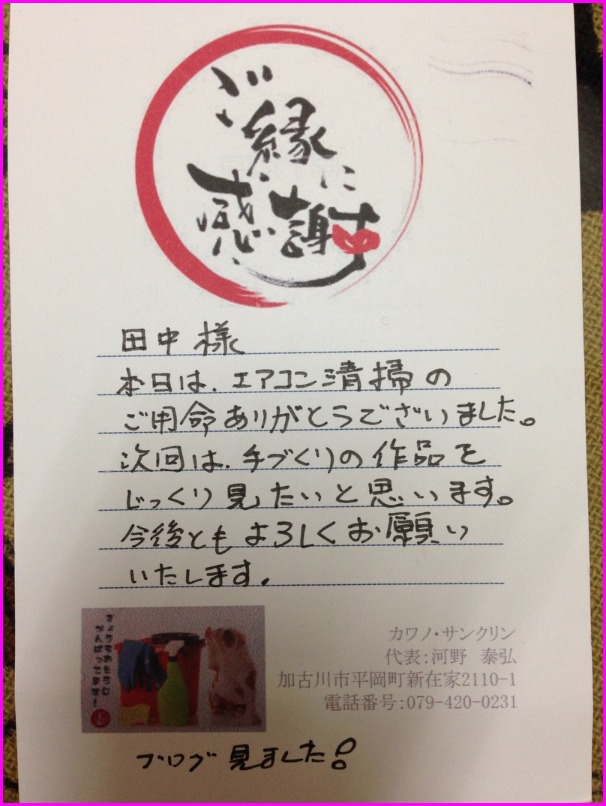 ご縁に
感謝
田中様
本日は、エアコン清掃の
ご用命ありがとうございました。
次回は、手づくりの作品を
じっくり見たいと思います。
今後ともよろしくお願い
いたします。
きょうもおそうじ
がんばってます!
カワノ・サンクリン
代表:河野 泰弘
加古川市平岡町新在家2110-1
電話番号:079-420-0231
ブログ見ました!